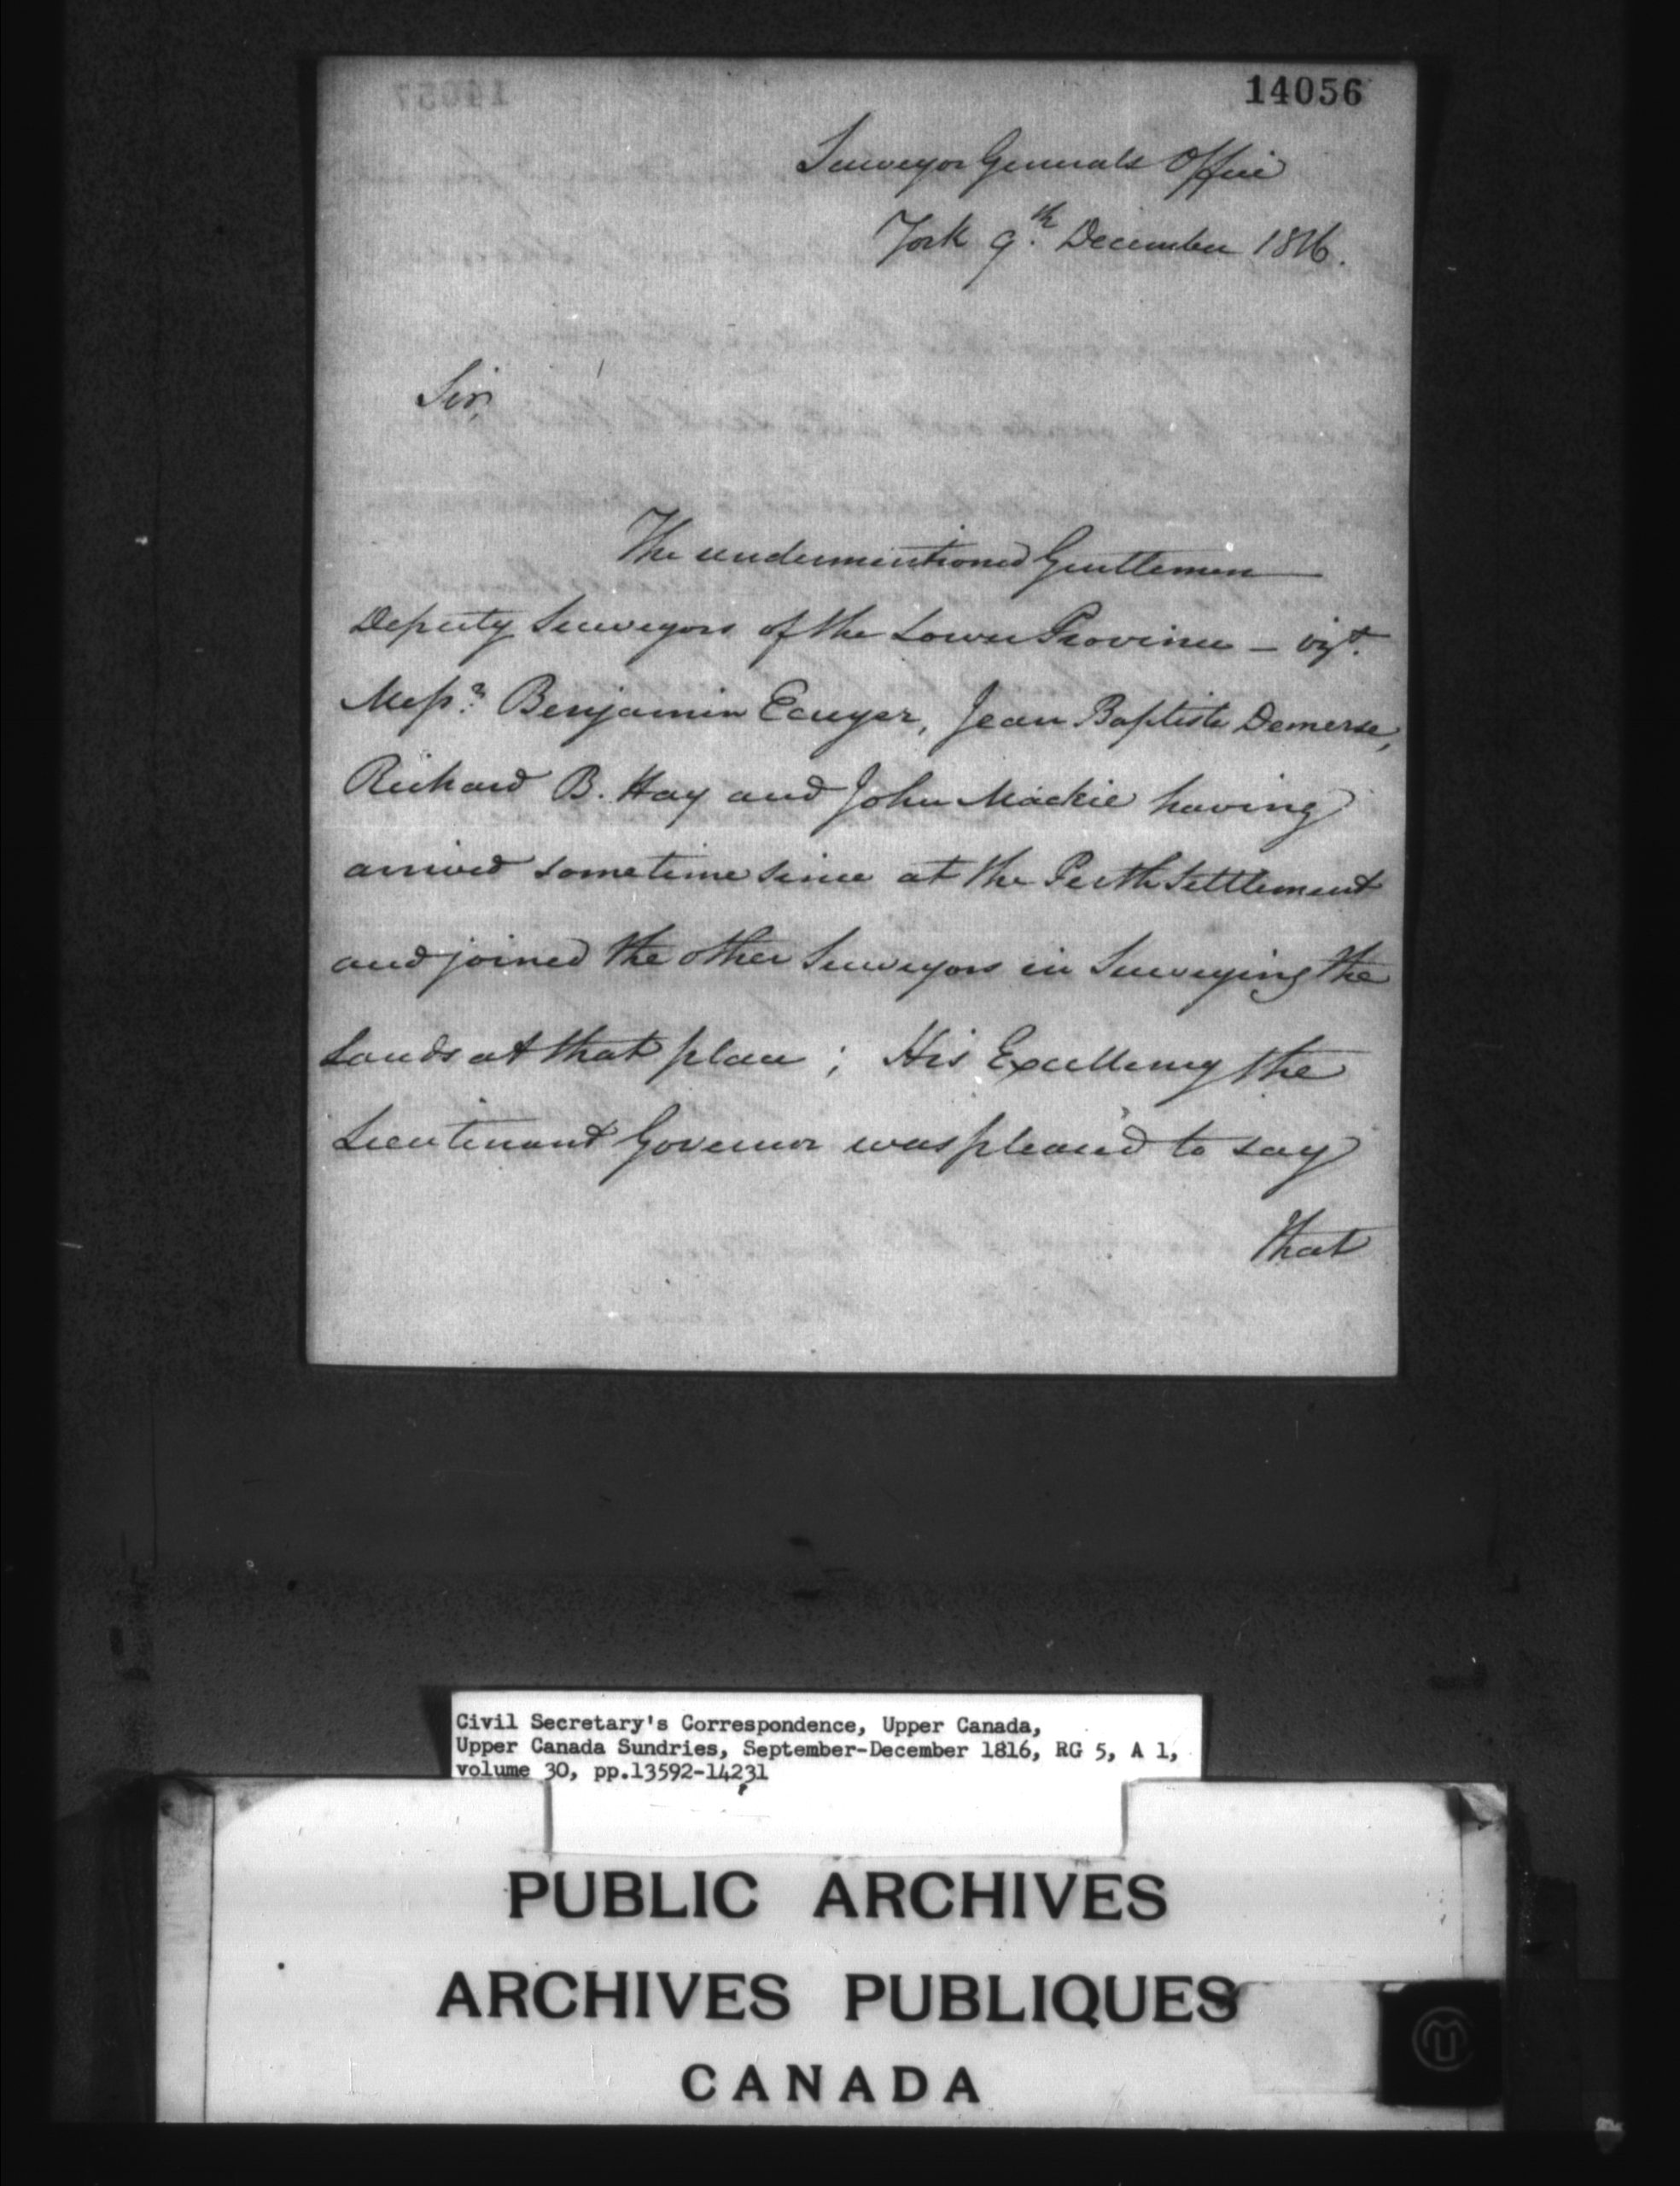 14056
Surveyor Generals Office
York 9th December 1816.
Sir,
The undermentioned Gentlemen
Deputy Surveyors of the Lower Province – vizt.
Messrs. Benjamin Ecuyer, Jean Baptiste Demerse,
Richard B. Hay and John Mackie having
arrived sometime since at the Perth Settlement
and joined the other Surveyors in Surveying the
Lands at that place; His Excellency the
Lieutenant Governor was pleased to say
that
Civil Secretary's Correspondence, Upper Canada,
Upper Canada Sundries, September-December 1816, RG 5, A 1,
volume 30, pp.13592-14231
PUBLIC ARCHIVES
ARCHIVES PUBLIQUES
CANADA